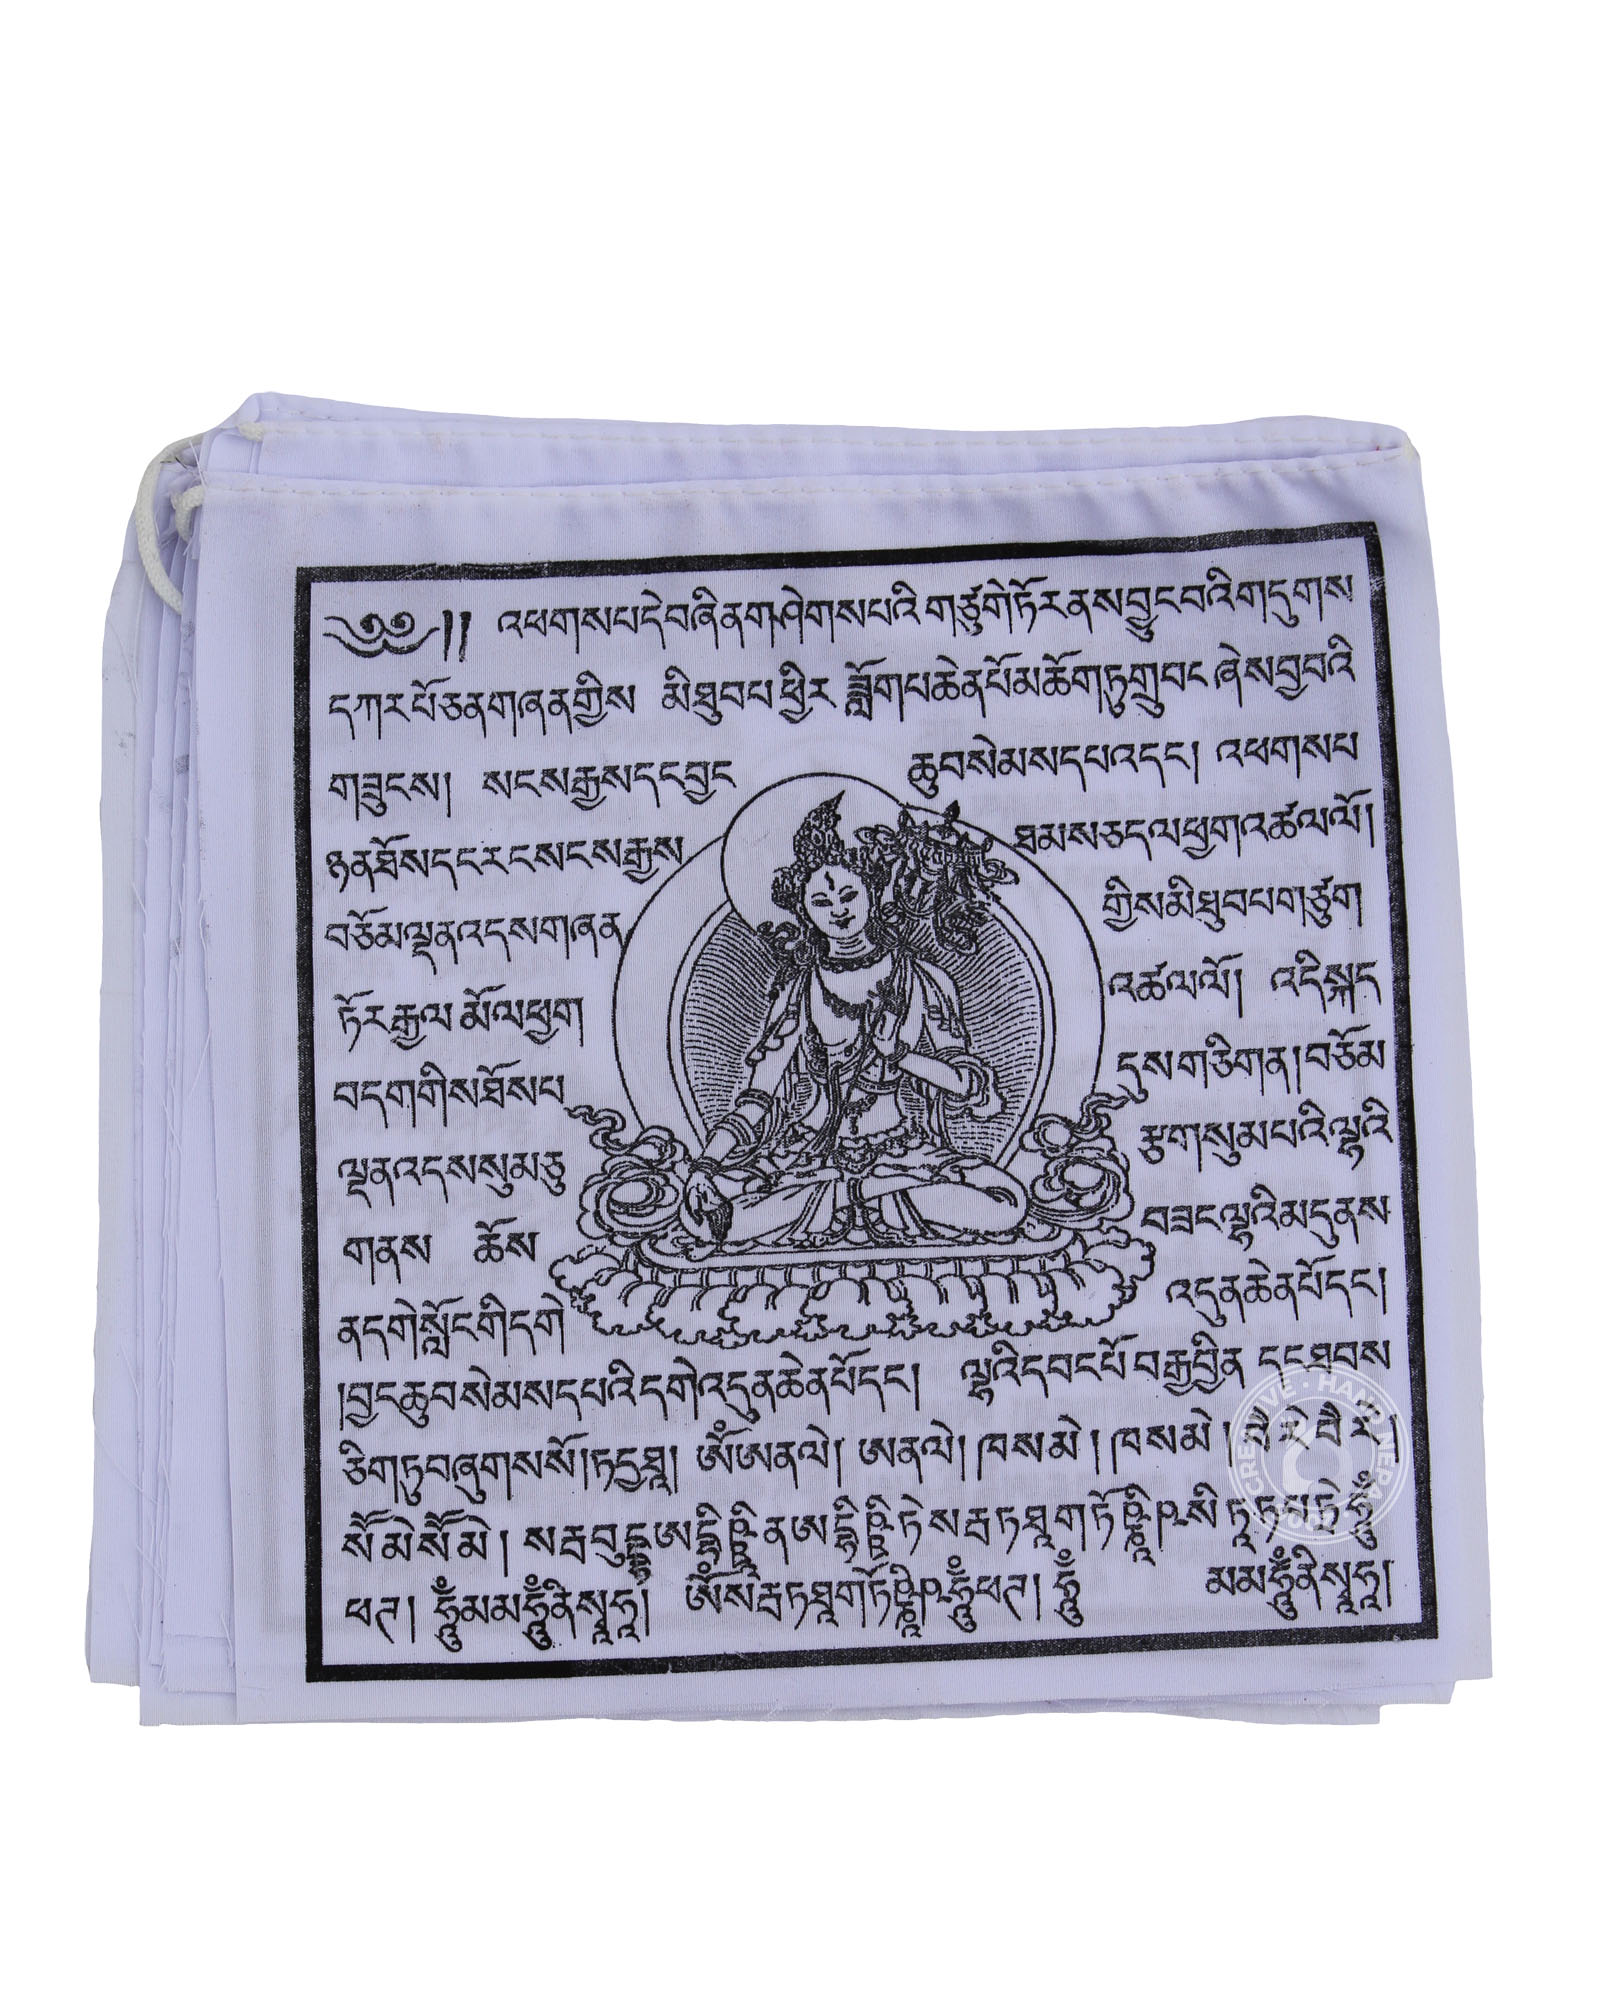 ༄༅།། འཕགས་པ་དེ་བཞིན་གཤེགས་པའི་གཙུག་ཏོར་ནས་བྱུང་བའི་གདུགས
དཀར་པོ་ཅན་གཞན་གྱིས མི་ཐུབ་པ་ཕྱིར་ཟློག་པ་ཆེན་པོ་མཆོག་ཏུ་གྲུབ་པ་ ཞེས་བྱ་བའི
གཟུངས། སངས་རྒྱས་དང་བྱང ཆུབ་སེམས་དཔའ་དང་། འཕགས་པ
ཉན་ཐོས་དང་རང་སངས་རྒྱས ཐམས་ཅད་ལ་ཕྱག་འཚལ་ལོ།
བཅོམ་ལྡན་འདས་གཞན གྱིས་མི་ཐུབ་པ་གཙུག
ཏོར་རྒྱལ་མོ་ལ་ཕྱག འཚལ་ལོ། འདི་སྐད
བདག་གིས་ཐོས་པ དུས་གཅིག་ན། བཅོམ
ལྡན་འདས་སུམ་ཅུ རྩ་གསུམ་པའི་ལྷའི
གནས ཆོས བཟང་ལྷའི་མདུན་ས
ན་དགེ་སློང་གི་དགེ འདུན་ཆེན་པོ་དང་།
།བྱང་ཆུབ་སེམས་དཔའི་དགེ་འདུན་ཆེན་པོ་དང་། ལྷའི་དབང་པོ་བརྒྱ་བྱིན་ དང་ཐབས
ཅིག་ཏུ་བཞུགས་སོ། ཏདྱཐཱ། ཨོཾ་ཨ་ནལེ། ཨ་ནལེ། ཁ་ས་མེ། ཁ་ས་མེ།
སཽ་མེ་སཽ་མེ། སརྦ་བུདྡྷ་ཨ་དྷིཥྛཱ་ན་ཨ་དྷིཥྛི་ཏེ་སརྦ་ཏ་ཐཱ་ག་ཏོ་ཥྞཱི་ཥ་སི་ཏཱ་ཏ་པ་ཏྲེ་ཧཱུྃ
ཕཊ། ཧཱུྃ་མ་མ་ཧཱུྃ་ནི་སྭཱཧཱ། ཨོཾ་སརྦ་ཏ་ཐཱ་ག་ཏོ་ཥྞཱི་ཥ་ཧཱུྃ་ཕཊ། ཧཱུྃ མ་མ་ཧཱུྃ་ནི་སྭཱཧཱ།
CREATIVE · HAND NEPAL